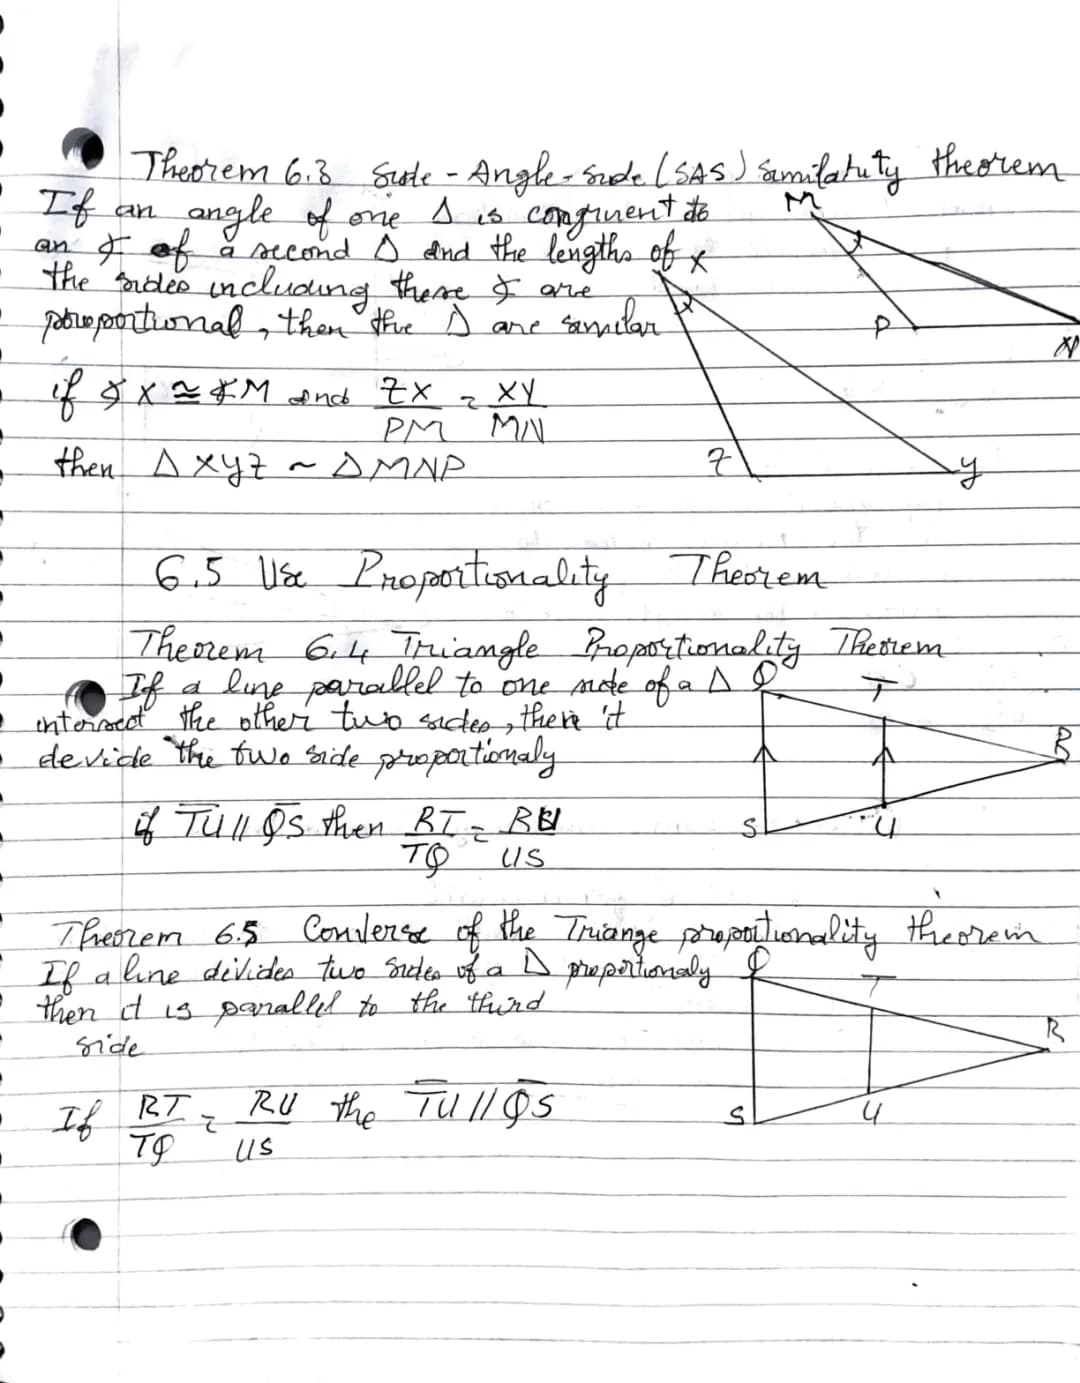 Theorem 6.3 Side - Angle - Side (SAS) Similatuty theorem
If an angle of one Δ is congruent to
an ∡ of a second Δ and the lengths of
the sides including these ∡ are
proportional, then the Δ are similar
M
X
P
N
if ∡ X ≅ ∡M and ZX/PM = XY/MN
then Δ XYZ ~ ΔMNP
Z
Y
6.5 Use Proportionality Theorem
Theorem 6.4 Triangle Proportionality Theorem
If a line parallel to one side of a Δ
intersect the other two sides, then it
devide the two side proportionaly
Q
T
R
S
U
if T̅U̅ // Q̅S̅ then RT/TQ = RU/US
Theorem 6.5 Converse of the Triange proportionality theorem
If a line divides two sides of a Δ proportionaly
then it is parallel to the third
side
Q
T
R
S
U
If RT/TQ = RU/US the T̅U̅ // Q̅S̅